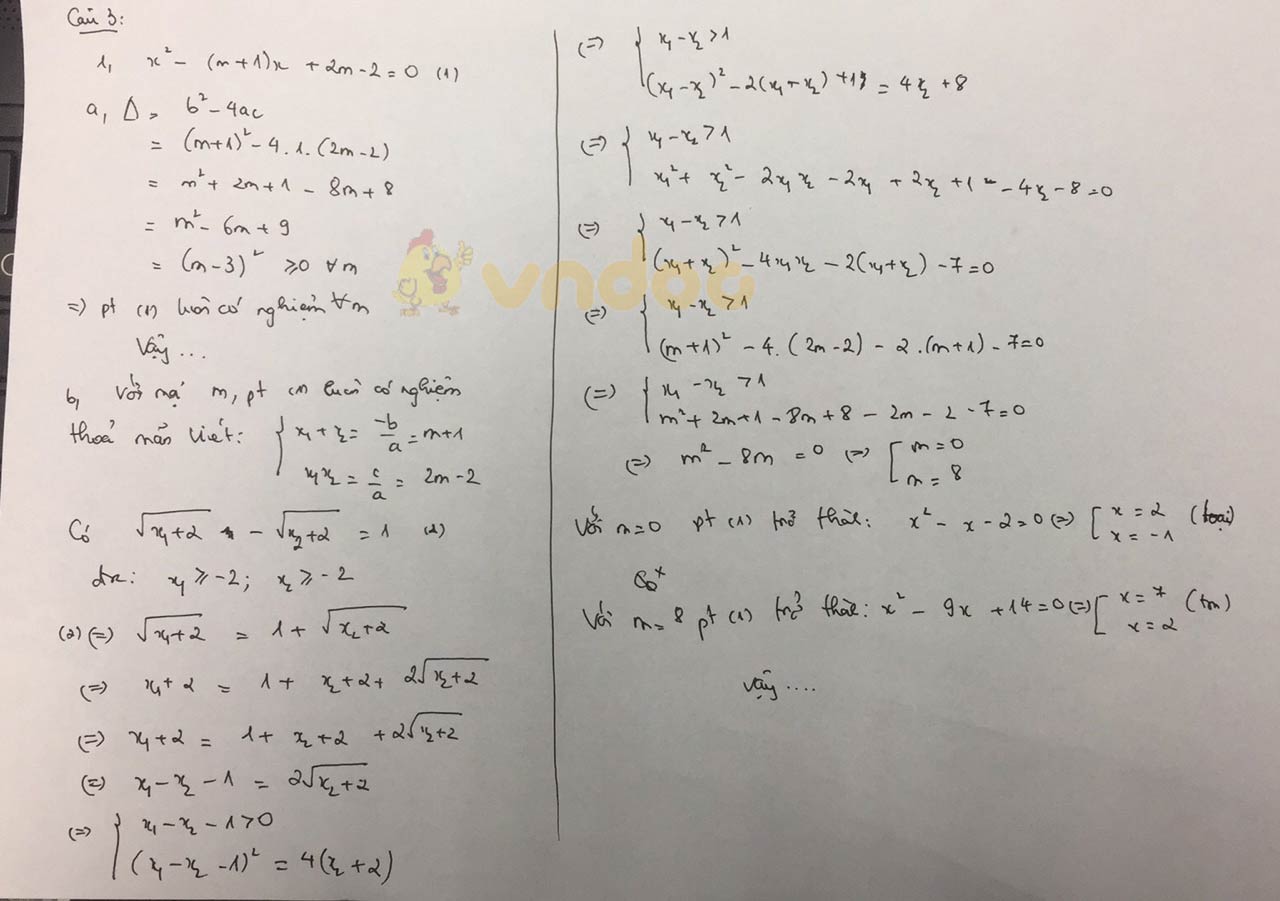 Câu 3:
1, x² - (m+1)x + 2m-2 = 0 (1)
a, Δ = b² - 4ac
= (m+1)² - 4.1.(2m-2)
= m² + 2m+1 - 8m+8
= m² - 6m + 9
= (m-3)² ≥0 ∀m
=> pt (1) luôn có nghiệm ∀m
Vậy...
b, Với mọi m, pt (1) luôn có nghiệm
thoả mãn Viét: { x₁ + x₂ = -b/a = m+1
x₁x₂ = c/a = 2m-2
Có √x₁+2 - √x₂+2 = 1 (2)
đk: x₁ ≥ -2; x₂ ≥ -2
(2) (=) √x₁+2 = 1 + √x₂+2
(=) x₁+2 = 1 + x₂+2 + 2√x₂+2
(=) x₁+2 = 1 + x₂+2 + 2√x₂+2
(=) x₁-x₂-1 = 2√x₂+2
(=) { x₁-x₂-1>0
(x₁-x₂-1)² = 4(x₂+2)
(=) { x₁-x₂>1
(x₁-x₂)² - 2(x₁-x₂) +1 = 4x₂+8
(=) { x₁-x₂>1
x₁² + x₂² - 2x₁x₂ - 2x₁ + 2x₂ + 1 - 4x₂ - 8 = 0
(=) { x₁-x₂>1
(x₁+x₂)² - 4x₁x₂ - 2(x₁+x₂) - 7=0
(=) { x₁-x₂>1
(m+1)² - 4.(2m-2) - 2.(m+1) - 7=0
(=) { x₁-x₂>1
m² + 2m+1 - 8m+8 - 2m - 2 - 7=0
(=) m² - 8m = 0 (=) [ m=0
m=8
Với m=0 pt (1) trở thành: x² - x - 2=0 (=) [ x=2
x=-1 (loại)
Với m=8 pt (1) trở thành: x² - 9x + 14=0 (=) [ x=7
x=2 (tm)
Vậy....
vndoc